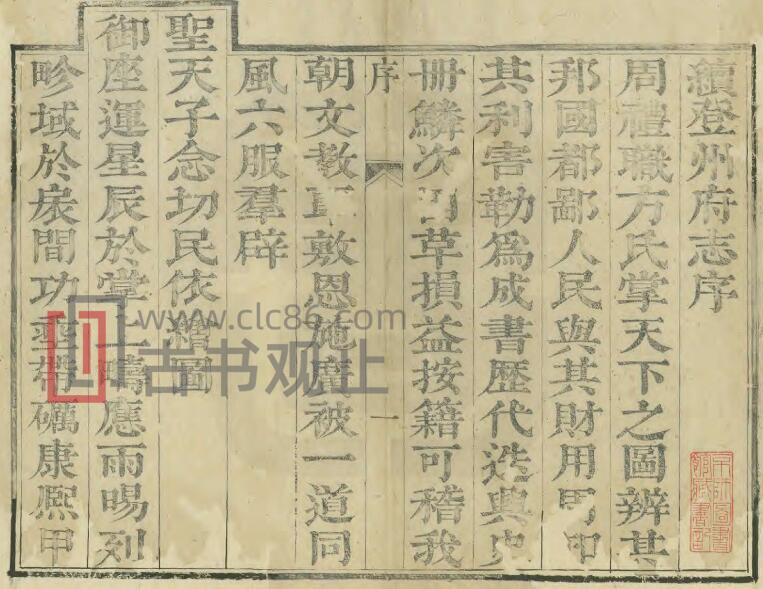 續登州府志序
周禮職方氏掌天下之圖辨其
邦國都鄙人民與其財用周知
其利害勒爲成書歷代迭興史
冊鱗次 草損益按籍可稽我
序
一
朝文教 敷恩施廣被一道同
風六服羣辟
聖天子念切民依繪圖
御座運星辰於堂上疇應雨暘列
畛域於扆間功垂帶礪康熙甲
www.clc86.com
古书观止